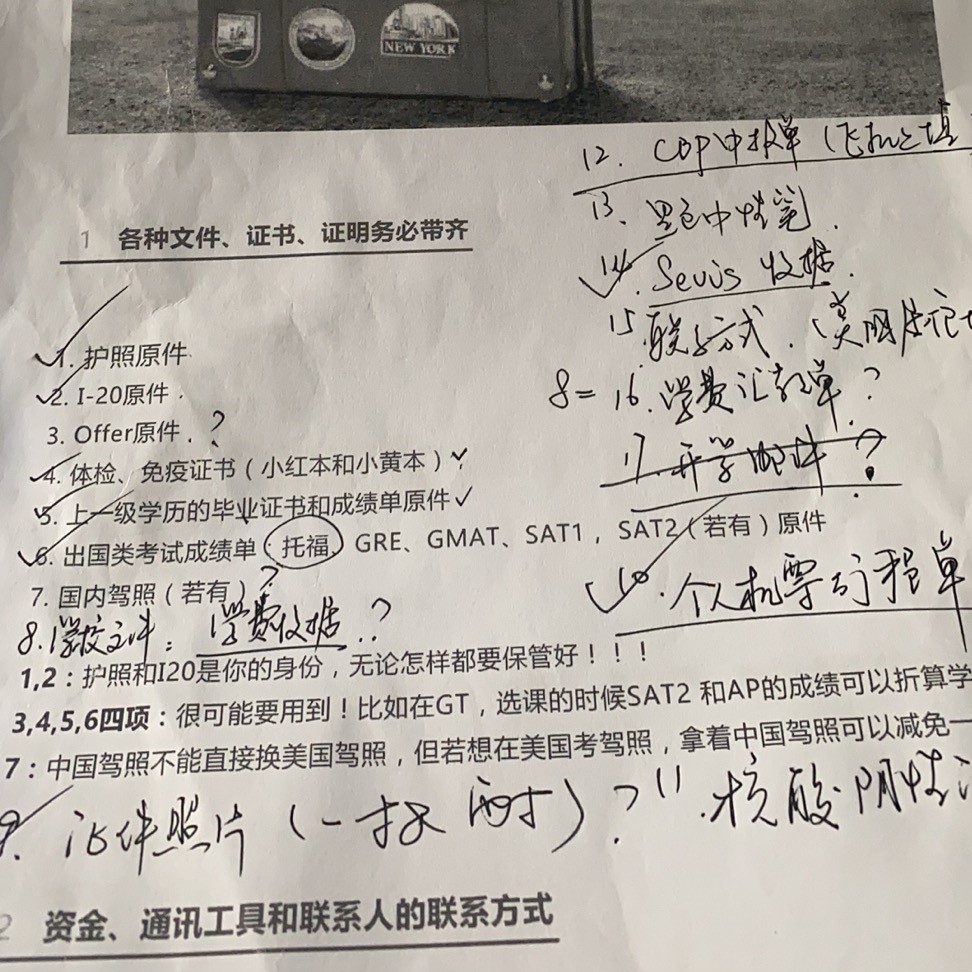 NEW YORK
12. CDP申报单（飞机上填
13. 黑色中性笔.
14. Sevis 收据.
1 各种文件、证书、证明务必带齐
15. 联系方式.（美国
1. 护照原件
8= 16. 学费汇款单？
2. I-20原件.
3. Offer原件. ？
17. 开学邮件？
4. 体检、免疫证书（小红本和小黄本）
5. 上一级学历的毕业证书和成绩单原件
6. 出国类考试成绩单（托福，GRE、GMAT、SAT1，SAT2（若有）原件
10. 个人机票与行程单
7. 国内驾照（若有）？
8. 学校文件：学费收据.？
1,2：护照和I20是你的身份，无论怎样都要保管好！！！
3,4,5,6四项：很可能要用到！比如在GT，选课的时候SAT2 和AP的成绩可以折算学
7：中国驾照不能直接换美国驾照，但若想在美国考驾照，拿着中国驾照可以减免一
9. 证件照片（一寸及两寸）？ 11. 核酸阴性
2 资金、通讯工具和联系人的联系方式